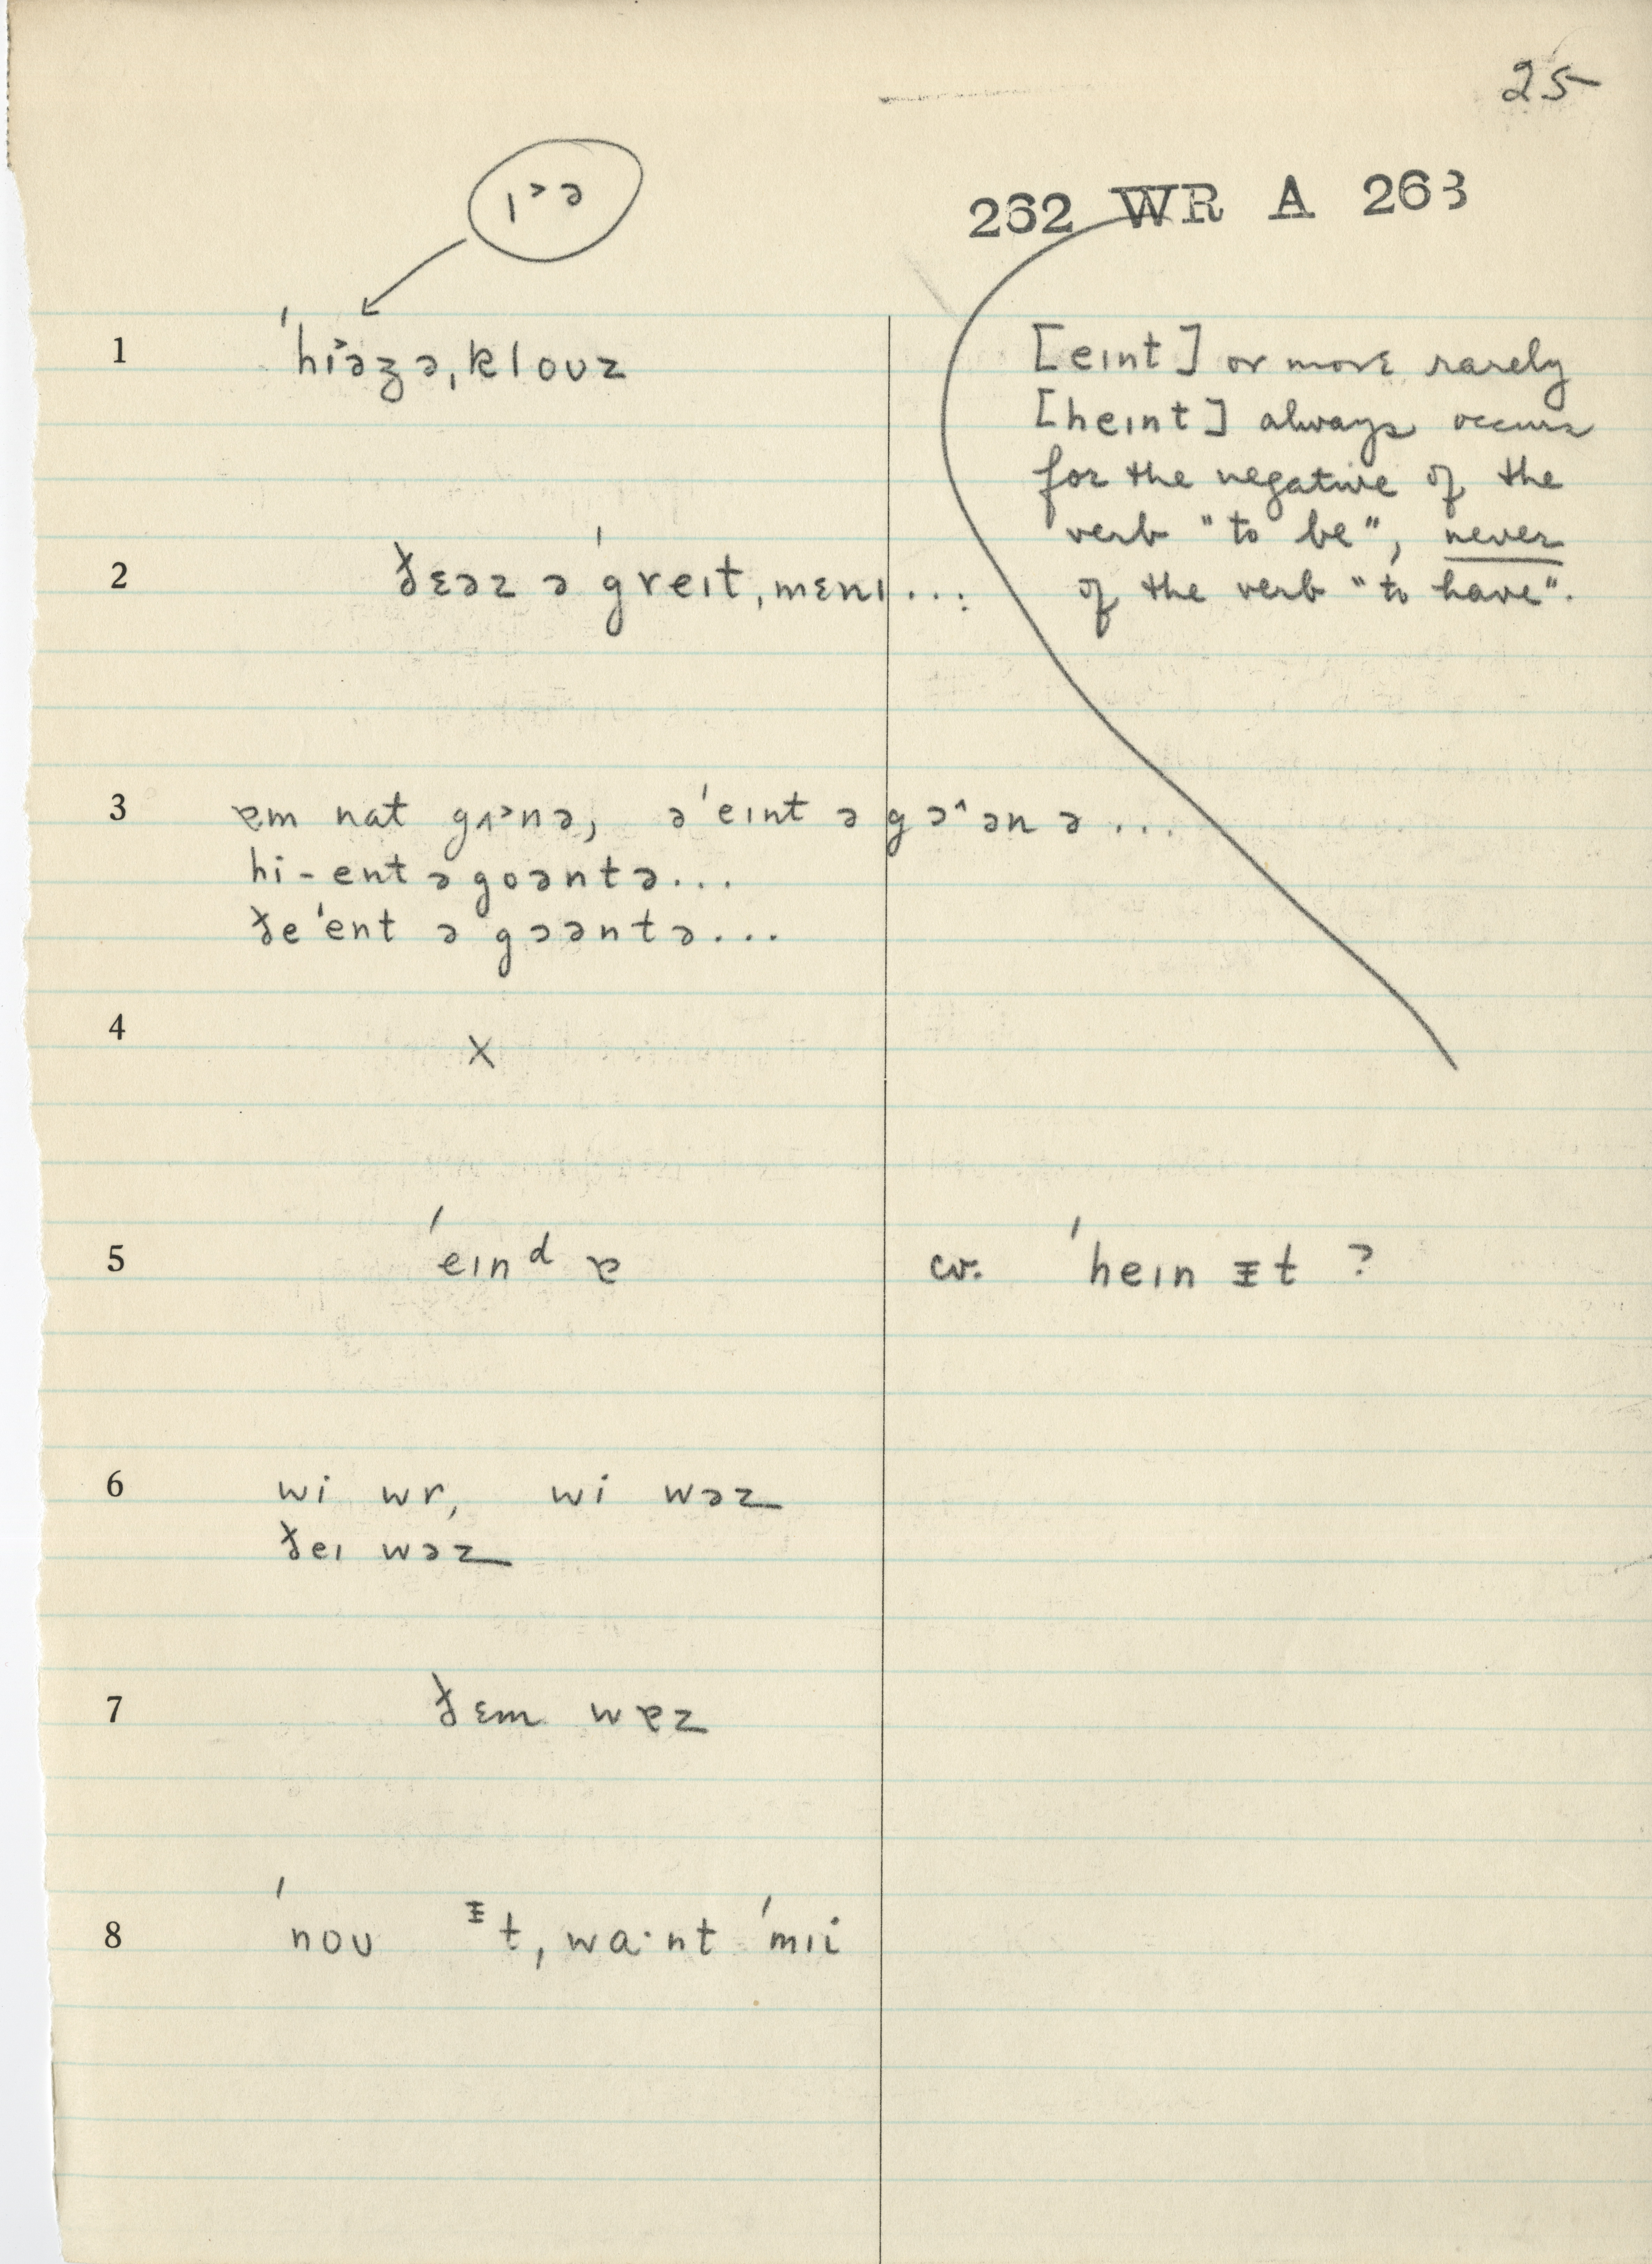 25
262 WR A 263
ɪ˃ə
1 ˈhi˃əzə, klouz
[eɪnt] or more rarely
[heɪnt] always occurs
for the negative of the
verb "to be", never
of the verb "to have".
2 ðɛəz ə ˈgreɪt, mɛnɪ...
3 ɐm nat gʌ˃nə, əˈeɪnt ə gɔ^ənə...
hi-ent ə goəntə...
ðeˈent ə gɔəntə...
4 X
5 ˈeɪnᵈ ɐ
cv. ˈheɪn ɪt ?
6 wi wr, wi wəz
ðeɪ wəz
7 ðɛm wɐz
8 ˈnou ᵻt, wa·nt ˈmɪi